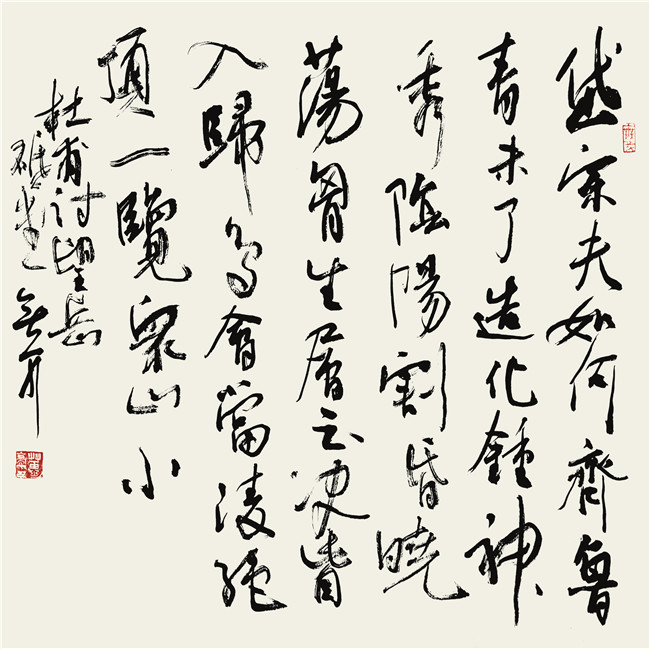 岱宗夫如何齊魯
青未了造化鍾神
秀陰陽割昏曉
蕩胷生層云決眥
入歸鳥會當凌絕
頂一覽眾山小
杜甫詩望岳